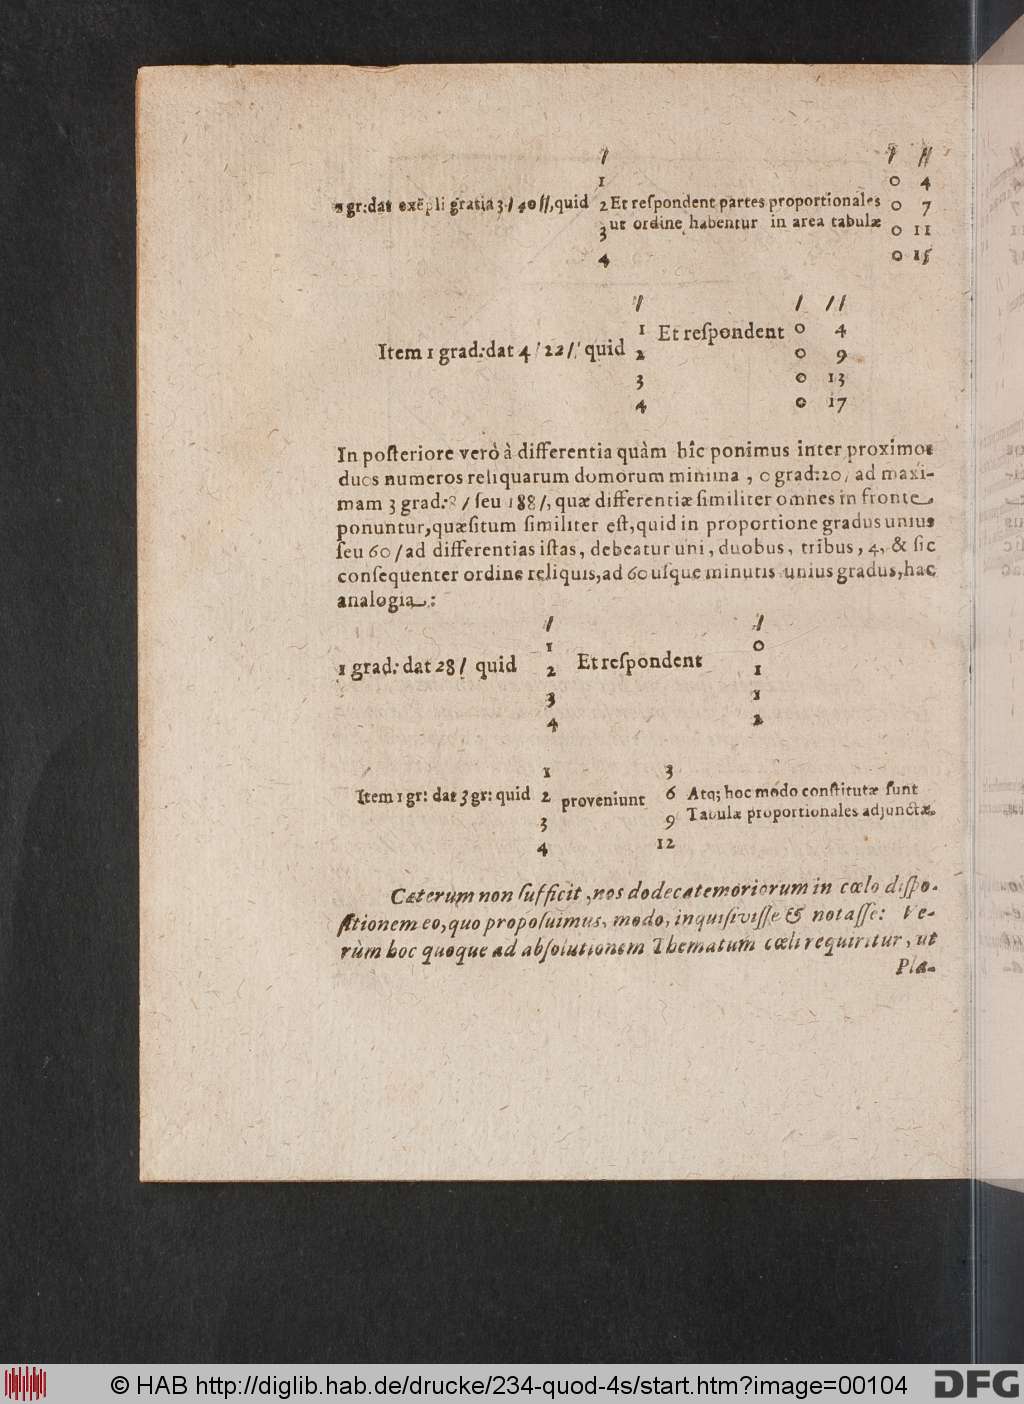 / / //
1 0 4
1 gr: dat exēpli gratia 3 / 40 //, quid 2 Et reſpondent partes proportionales 0 7
3 ut ordine habentur in area tabulæ 0 11
4 0 15
/ / //
1 Et reſpondent 0 4
Item 1 grad: dat 4 / 22 // quid 2 0 9
3 0 13
4 0 17
In poſteriore verò à differentia quàm hîc ponimus inter proximos
duos numeros reliquarum domorum minima, 0 grad: 20 / ad maxi-
mam 3 grad: 8 / ſeu 188 /, quæ differentiæ ſimiliter omnes in fronte
ponuntur, quæſitum ſimiliter eſt, quid in proportione gradus unius
ſeu 60 / ad differentias iſtas, debeatur uni, duobus, tribus, 4, & ſic
conſequenter ordine reliquis, ad 60 uſque minutis unius gradus, hac
analogia:
/ /
1 0
1 grad: dat 28 / quid 2 Et reſpondent 1
3 1
4 2
1 3
Item 1 gr: dat 3 gr: quid 2 proveniunt 6 Atq; hoc modo conſtitutæ ſunt
3 9 Tabulæ proportionales adjunctæ.
4 12
Cæterum non ſufficit, nos dodecatemoriorum in cœlo diſpo-
ſitionem eo, quo propoſuimus, modo, inquiſiviſſe & notaſſe: Ve-
rùm hoc quoque ad abſolutionem Thematum cœli requiritur, ut
Pla-
© HAB http://diglib.hab.de/drucke/234-quod-4s/start.htm?image=00104
DFG